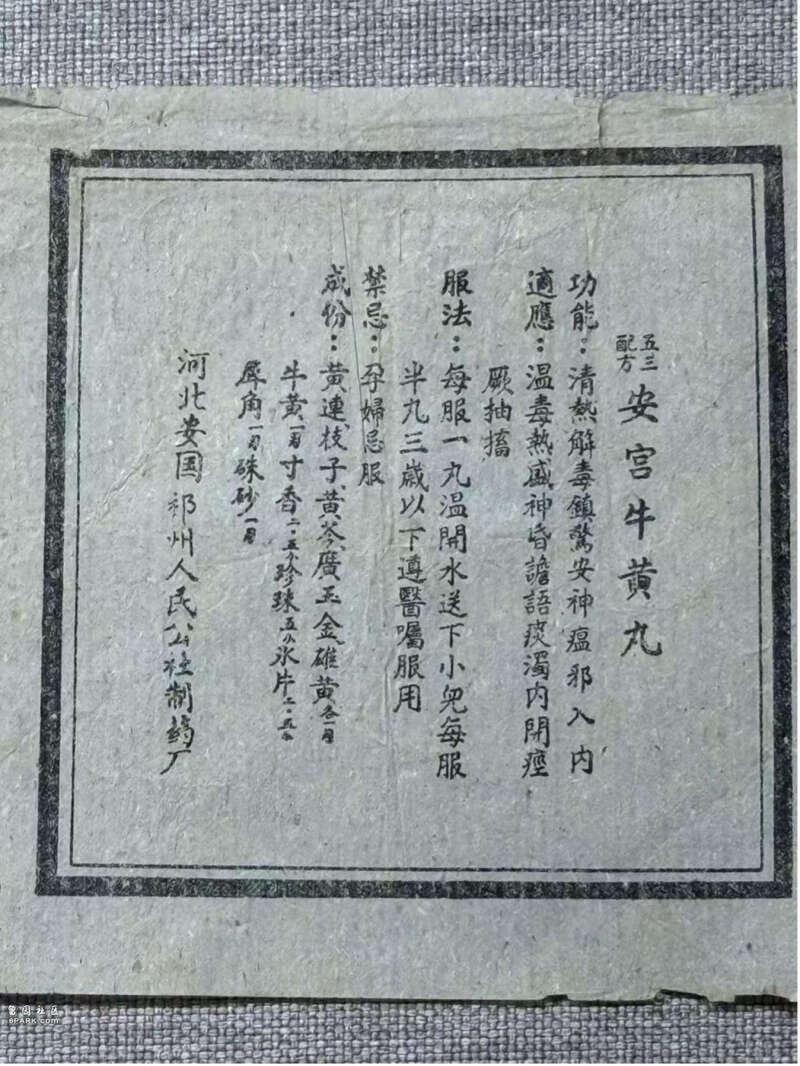 五三配方 安宫牛黄丸
功能：清熱解毒鎮驚安神瘟邪入内
適應：温毒熱盛神昏譫語痰濁内閉痙
厥抽搐
服法：每服一丸温開水送下小兒每服
半丸三歲以下遵醫囑服用
禁忌：孕婦忌服
成份：黄連枝子黄芩廣玉金雄黄各一
牛黄一寸香二·五分珍珠五分冰片二·五分
犀角一硃砂一
河北安国祁州人民公社制药厂
6PARK.COM